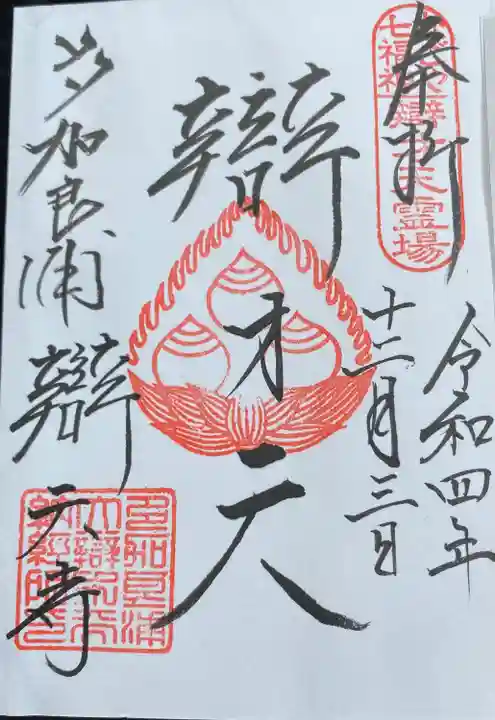 奉拝
七福神 辯才天霊場
令和四年
十二月三日
辯才天
多加良浦
辯天寺